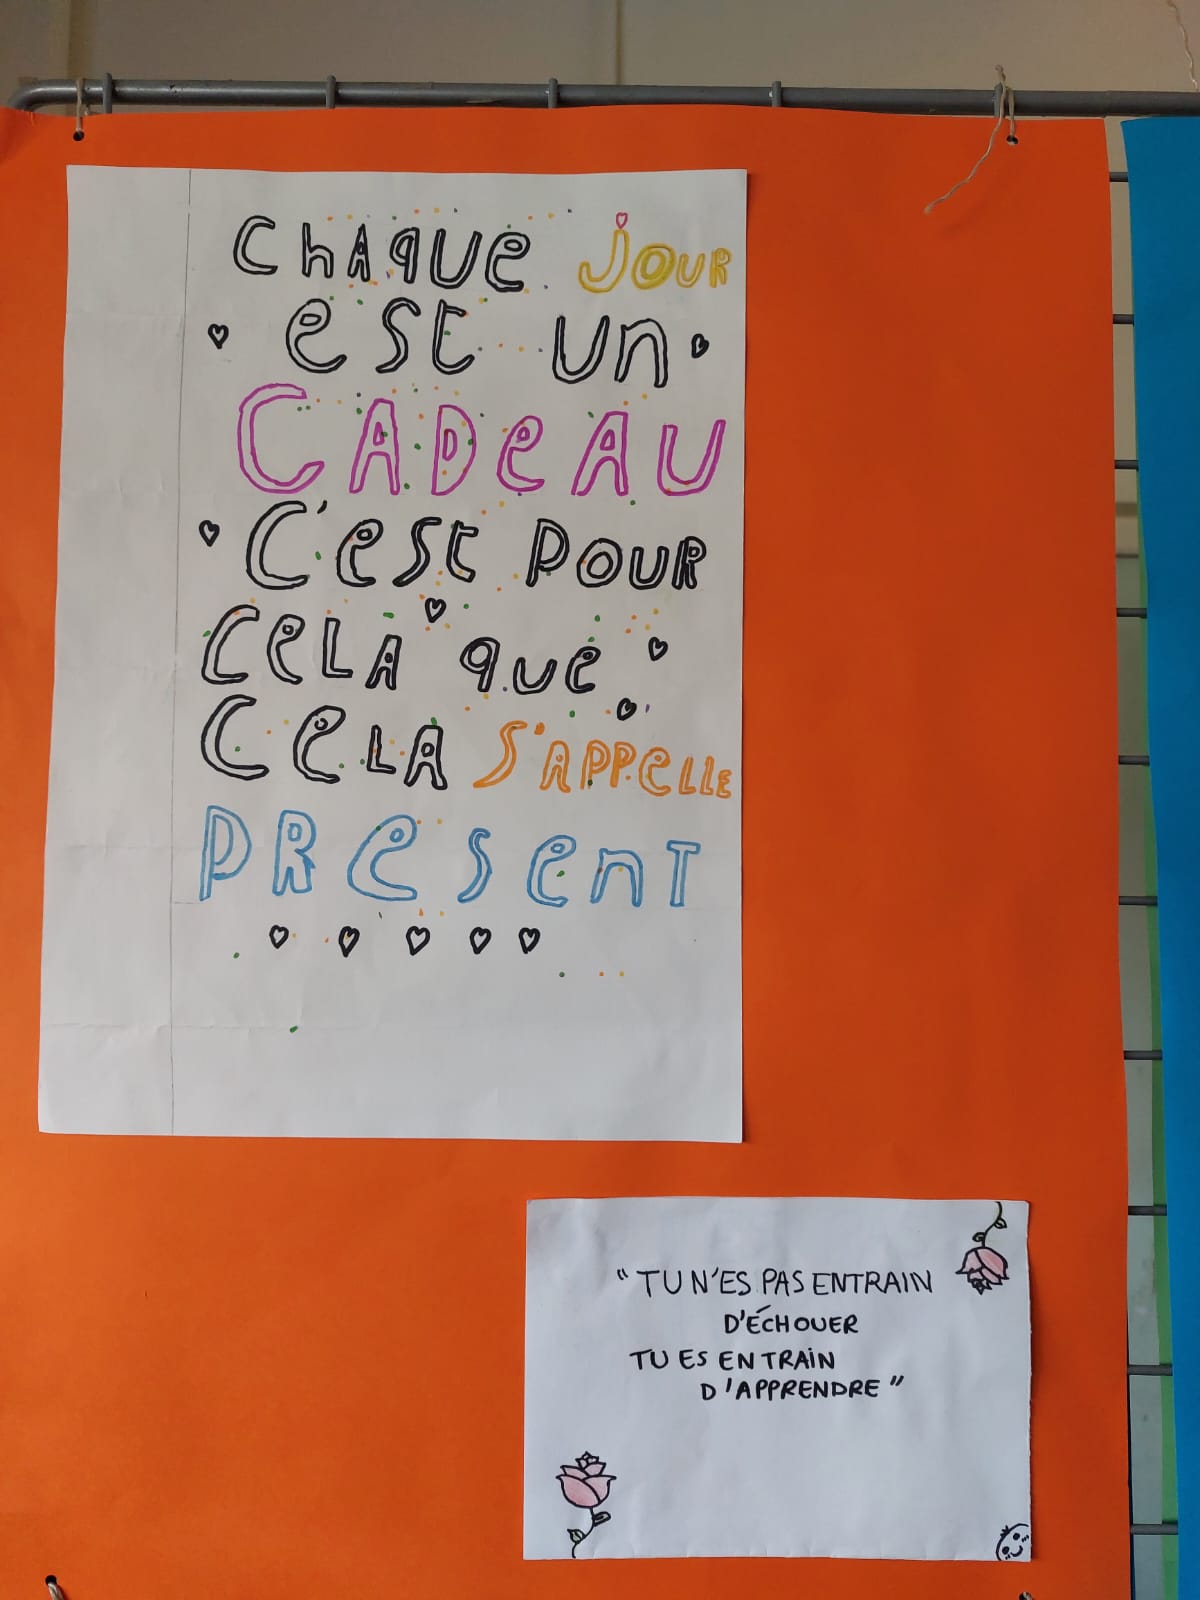 Chaque jour
est un
CADeAU
C'est pour
Cela que
Cela s'appelle
PReSenT
"TU N'ES PAS ENTRAIN
D'ÉCHOUER
TU ES EN TRAIN
D'APPRENDRE"